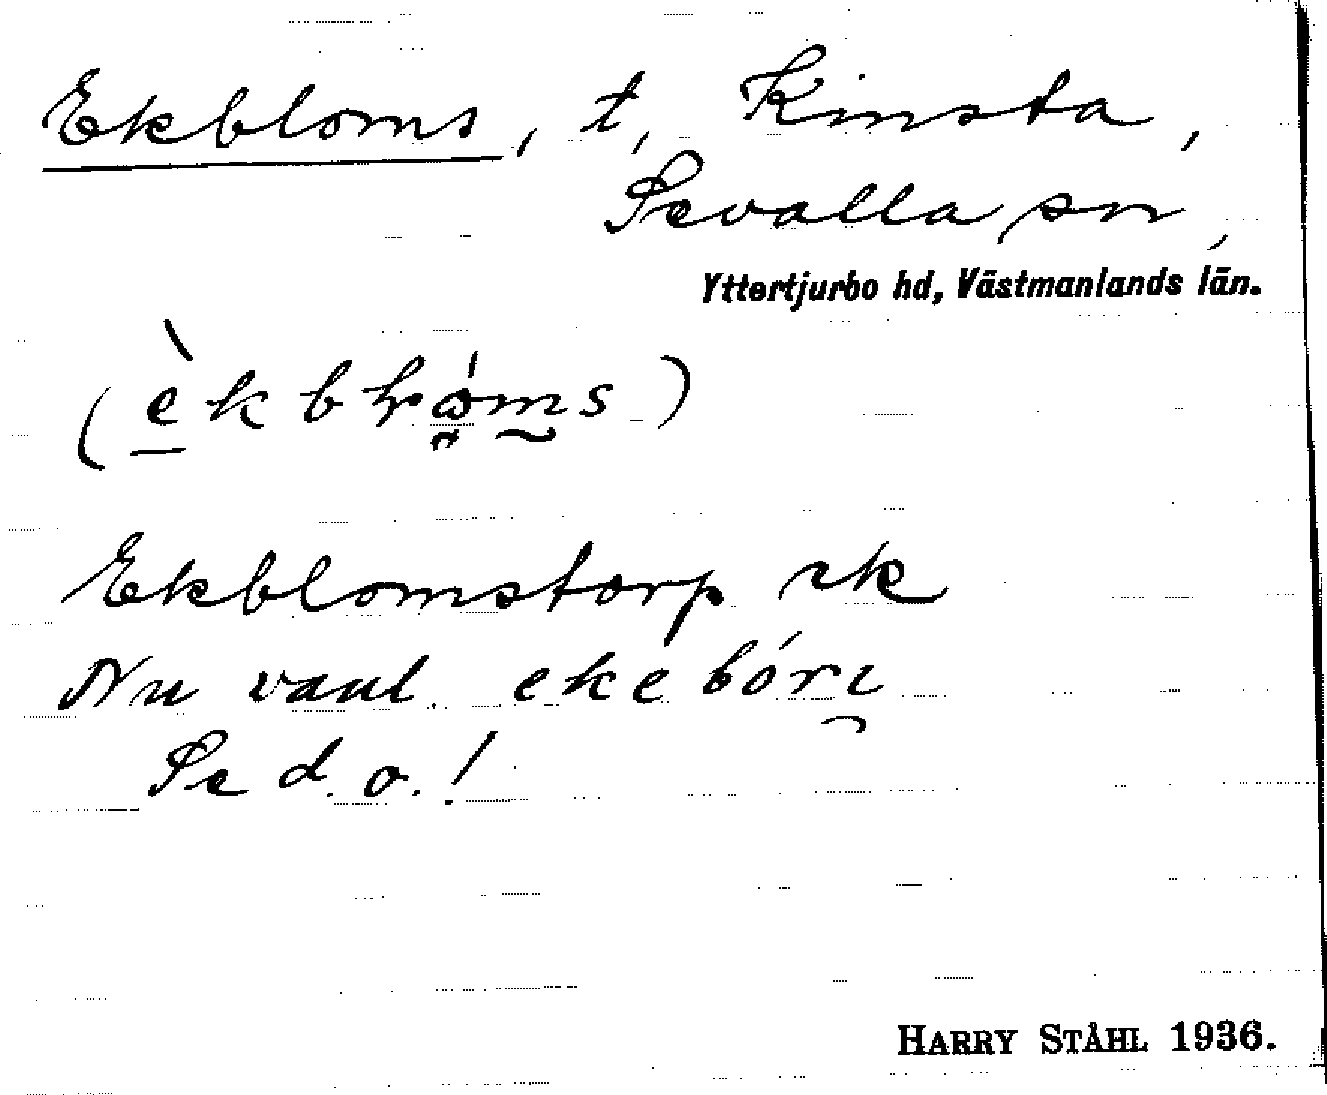 Ekbloms, t, Kinsta,
Sevalla sn,
Yttertjurbo hd, Västmanlands län.
Ekblomstorp rk
Nu vanl. ekebórɩ
Se d. o.!
HARRY STÅHL 1936.